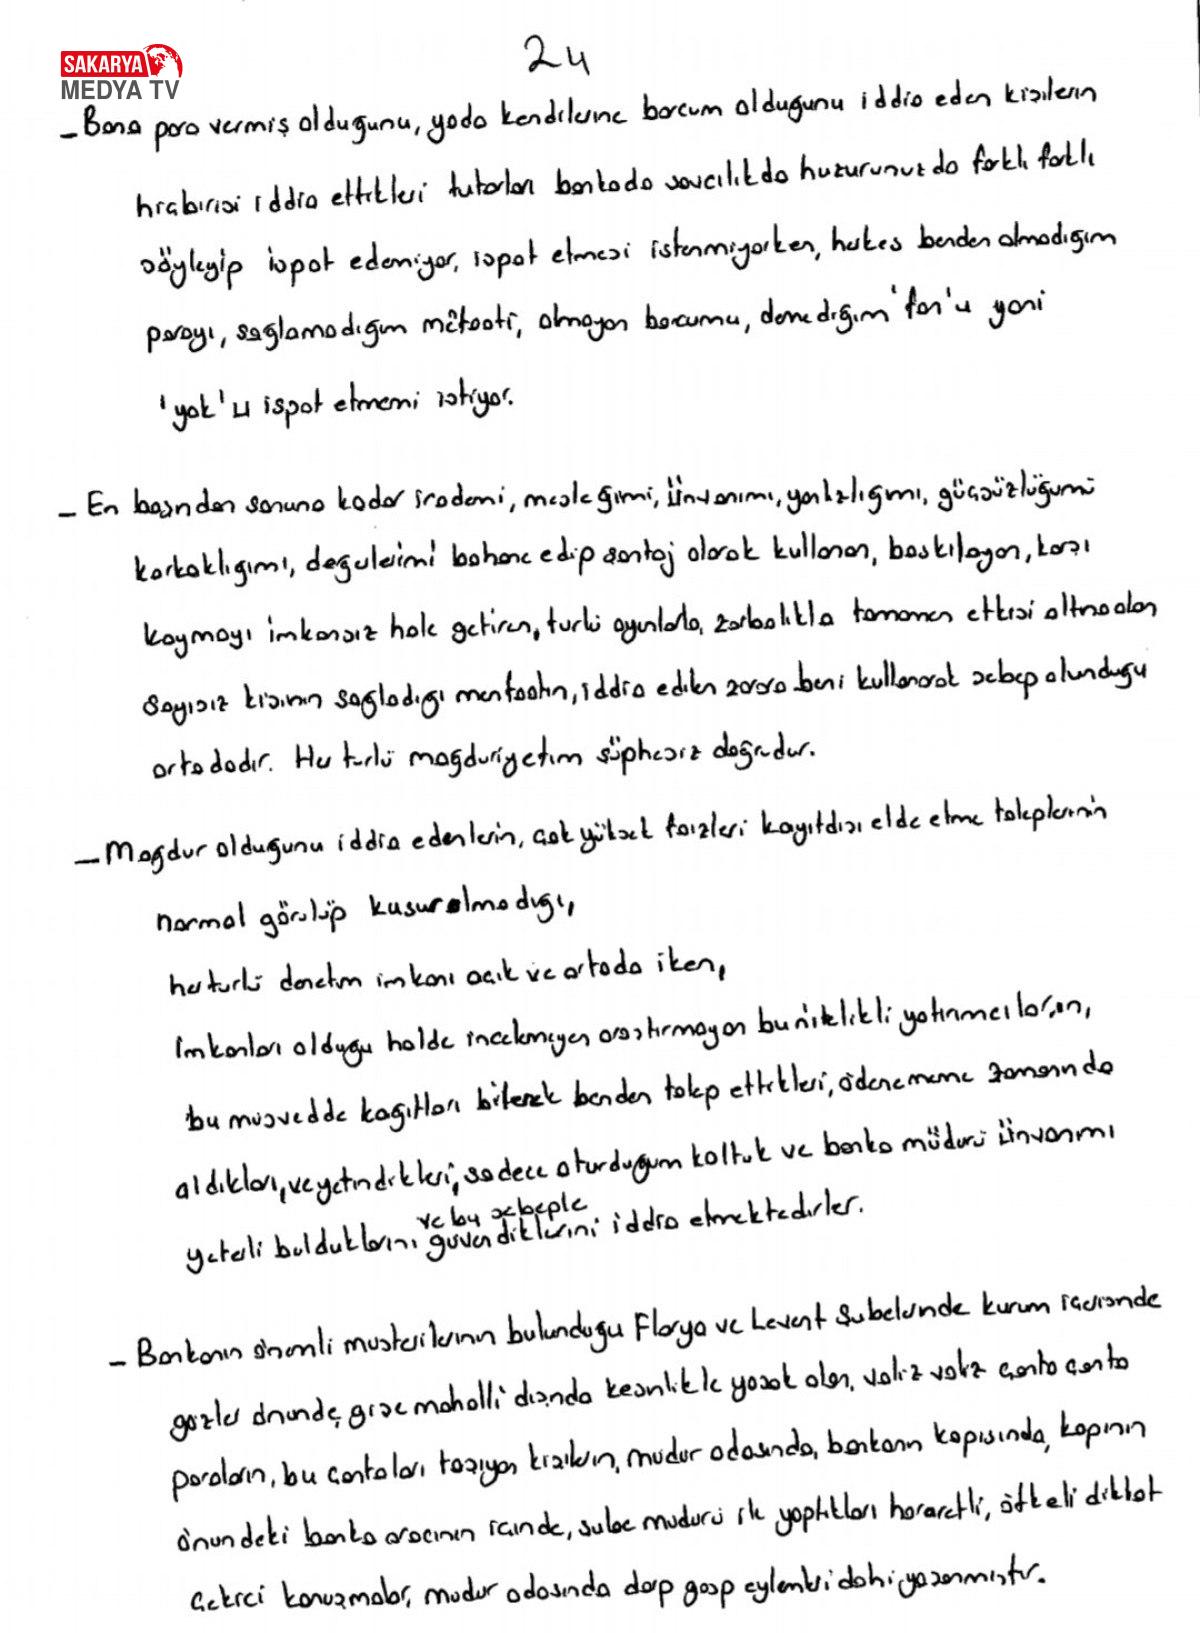 SAKARYA
MEDYA TV
24
- Bana para vermiş olduğunu, yada kendilerine borcum olduğunu iddia eden kişilerin
hiçbirisi iddia ettikleri tutarları bankada savcılıkda huzurunuzda farklı farklı
söyleyip ispat edemiyor, ispat etmesi istenmiyorken, herkes benden almadığım
parayı, sağlamadığım menfaati, olmayan borcumu, denediğim 'fon'u yani
'yok'u ispat etmemi istiyor.
- En başından sonuna kadar irademi, mesleğimi, ünvanımı, yanlızlığımı, güçsüzlüğümü
korkaklığımı, değerlerimi bahane edip şantaj olarak kullanan, baskılayan, karşı
koymayı imkansız hale getiren, türlü oyunlarla, zorbalıkla tamamen etkisi altına alan
sayısız kişinin sağladığı menfaatin, iddia edilen zarara beni kullanarak sebep olunduğu
ortadadır. Her türlü mağduriyetim şüphesiz doğrudur.
- Mağdur olduğunu iddia edenlerin, çok yüksek faizleri kayıtdışı elde etme taleplerinin
normal görülüp kusur olmadığı,
her türlü denetim imkanı açık ve ortada iken,
imkanları olduğu halde incelemeyen araştırmayan bu nitelikli yatırımcıların,
bu müsvedde kağıtları bilerek benden talep ettikleri, ödenememe zamanında
aldıkları, ve yetindikleri, sadece oturduğum koltuk ve banka müdürü ünvanımı
ve bu sebeple
yeterli bulduklarını güvendiklerini iddia etmektedirler.
- Bankanın önemli müşterilerinin bulunduğu Florya ve Levent şubelerinde kurum içerisinde
gözler önünde, gişe mahalli dışında kesinlikle yasak olan, valiz valiz çanta çanta
paraların, bu çantaları taşıyan kişilerin, müdür odasında, bankanın kapısında, kapının
önündeki banka aracının içinde, şube müdürü ile yaptıkları hararetli, öfkeli dikkat
çekici konuşmalar, müdür odasında darp gasp eylemleri dahi yaşanmıştır.